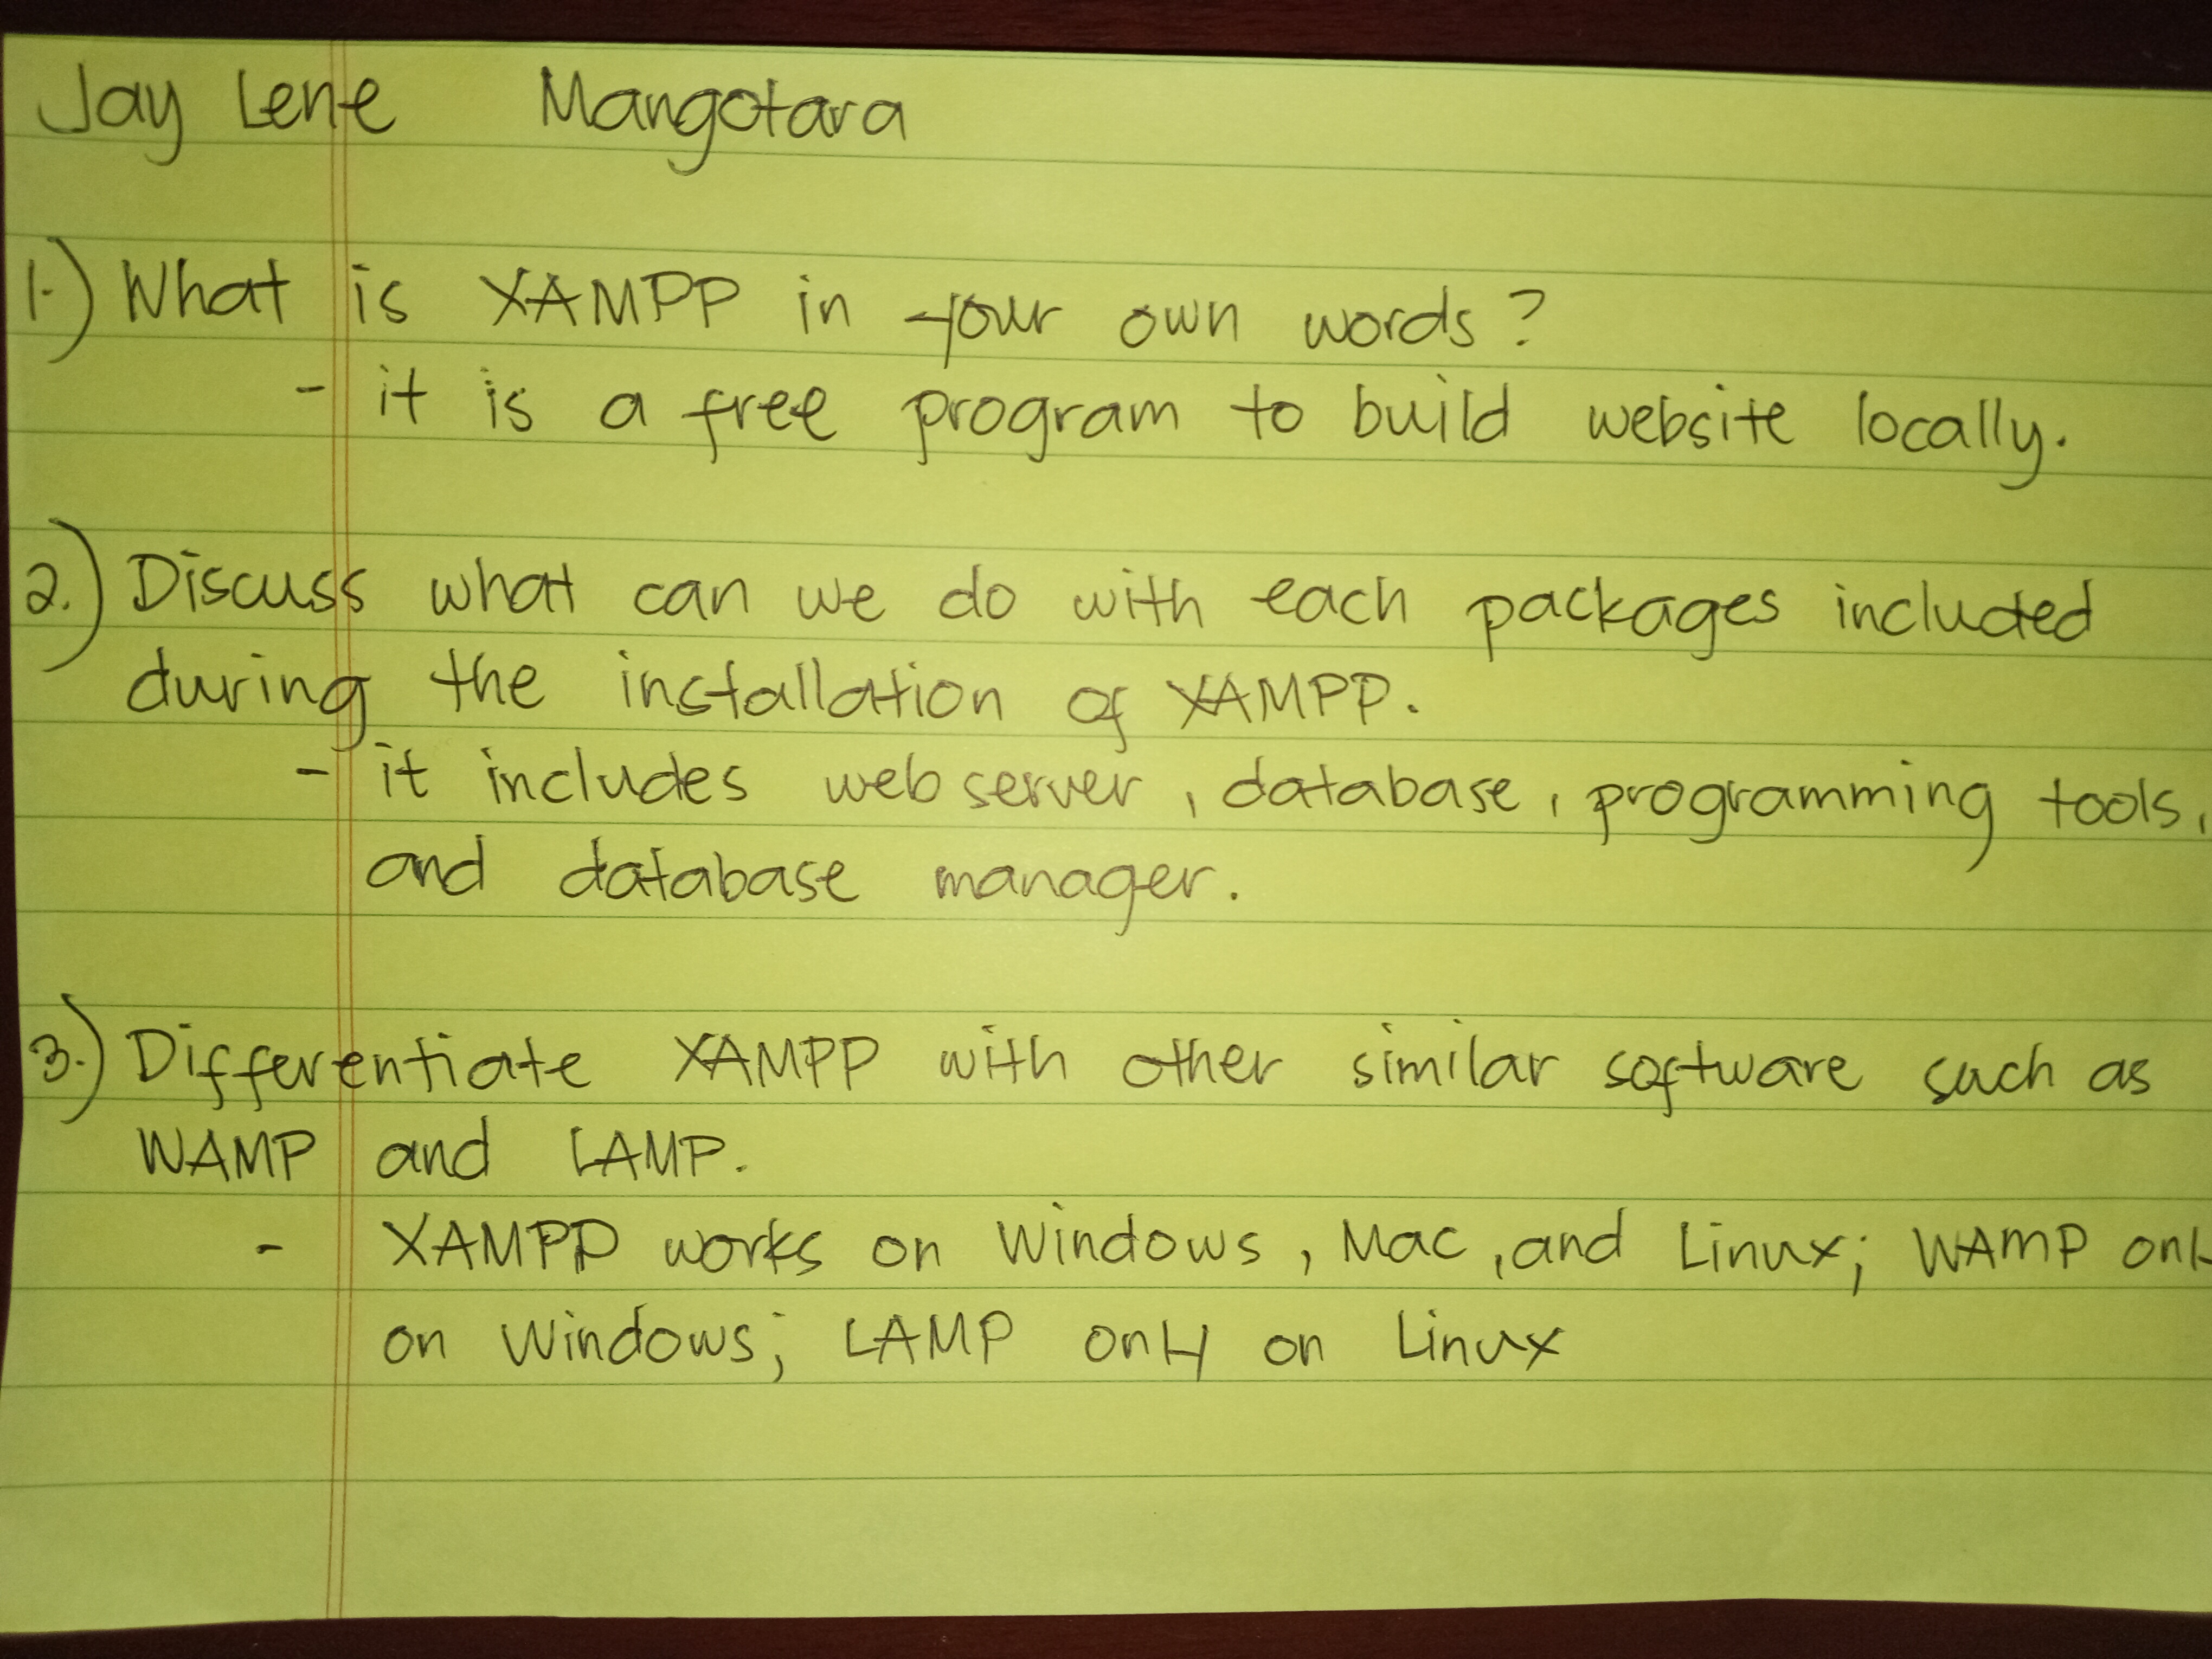 Jay Lene Mangotara
1.) What is XAMPP in your own words?
- it is a free program to build website locally.
2.) Discuss what can we do with each packages included
during the installation of XAMPP.
- it includes web server, database, programming tools,
and database manager.
3.) Differentiate XAMPP with other similar software such as
WAMP and LAMP.
- XAMPP works on Windows, Mac, and Linux; WAMP only
on Windows; LAMP only on Linux